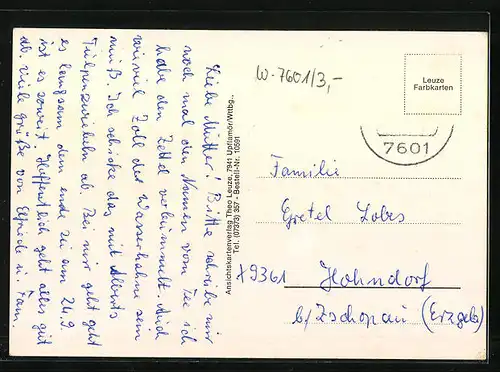 Liebe Mutter! Bitte schreibe mir
noch mal den Namen vom Tee ich
habe den Zettel verbimmelt. Auch
wieviel Zoll der Wasserhahn sein
muß. Ich schicke das mit Alberts
Tulpenzwiebeln ab. Bei mir geht geht
es langsam dem ende zu am 24.9.
ist es soweit. Hoffentlich geht alles gut
ab. viele grüße von Elfriede u. Fam.
Ansichtskartenverlag Theo Leuze, 7941 Upflamör/Wttbg.,
Tel. (07373) 357 - Bestell-Nr. 10591
W-7601/3,-
Leuze
Farbkarten
7601
Familie
Gretel Lobes
X9361 Hohndorf
b/Zschopau (Erzgeb.)